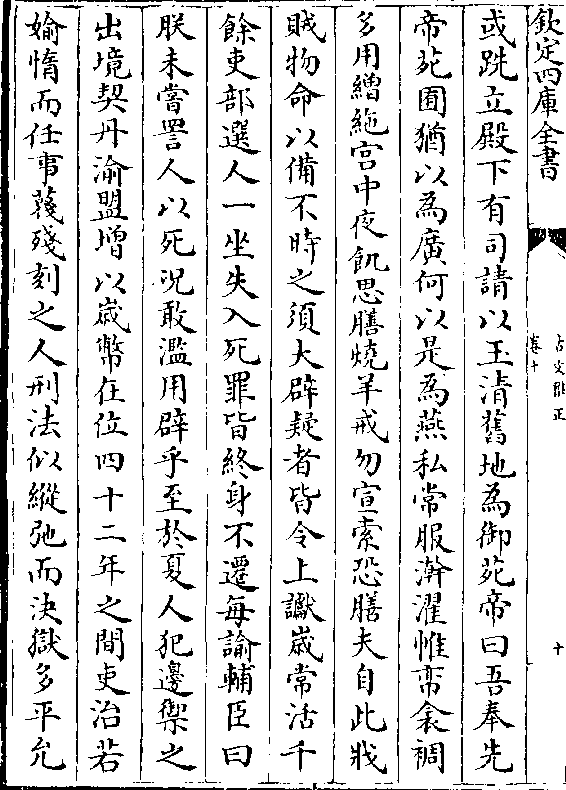 欽定四庫全書
或跣立殿下有司請以玉清舊地為御苑帝曰吾奉先
帝苑囿猶以為廣何以是為燕私常服澣濯惟帟衾裯
多用繒絁宫中夜飢思膳燒羊戒勿宣索恐膳夫自此戕
賊物命以備不時之須大辟疑者皆令上讞歲常活千
餘吏部選人一坐失入死罪皆終身不遷每諭輔臣曰
朕未嘗詈人以死況敢濫用辟乎至於夏人犯邊禦之
出境契丹渝盟增以歲幣在位四十二年之間吏治若
婾惰而任事蔑殘刻之人刑法似縱弛而決獄多平允
古文雅正
卷十
十